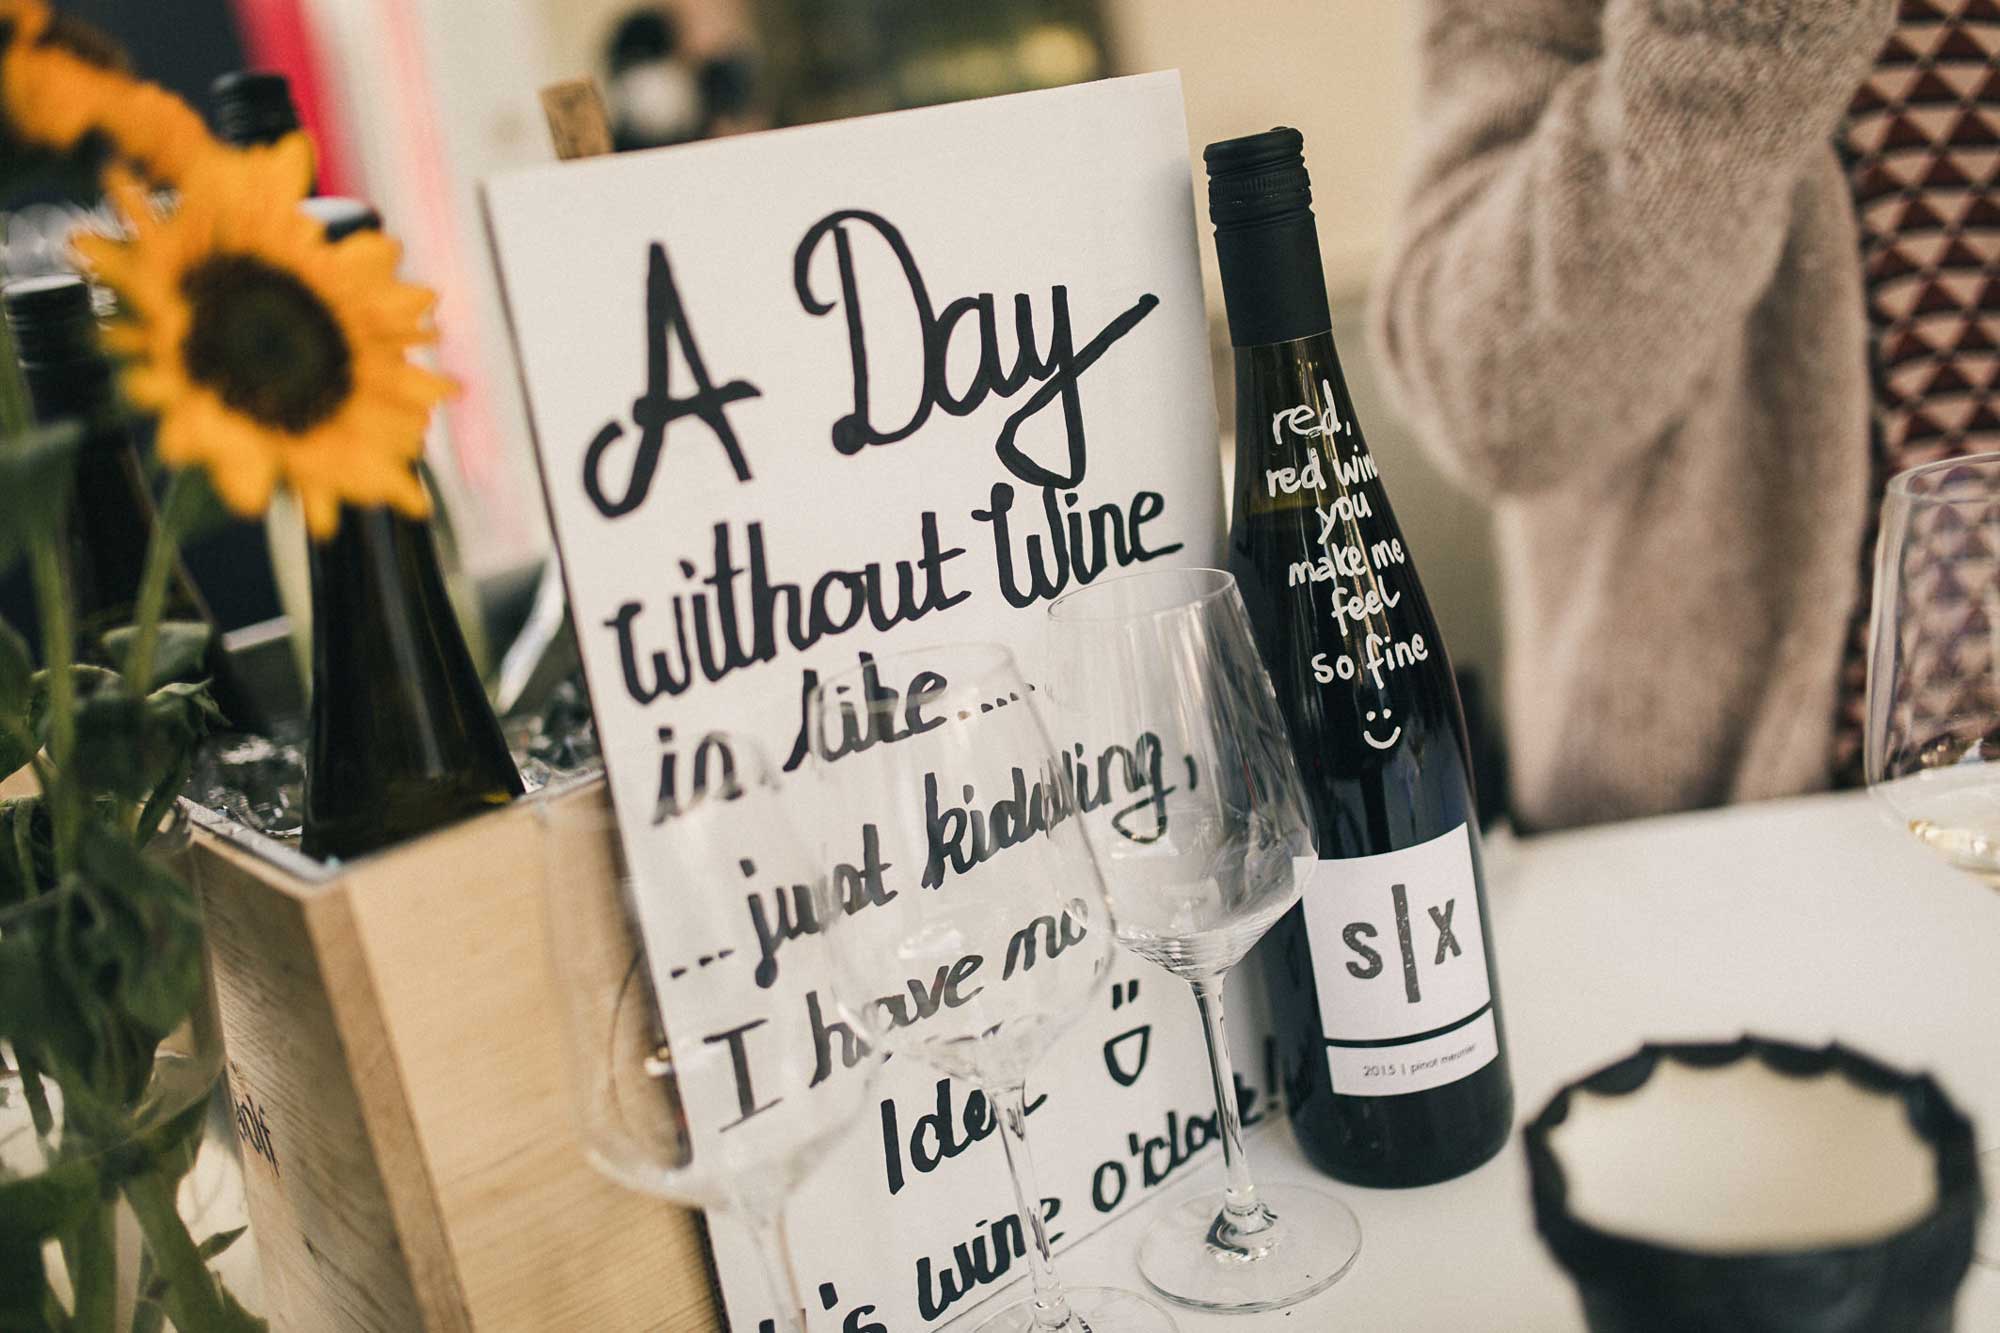 A Day
without Wine
is like.....
...just kidding,
I have no
Idea
It's wine o'clock!
red,
red wine
you
make me
feel
so fine
s|x
2015 | pinot meunier